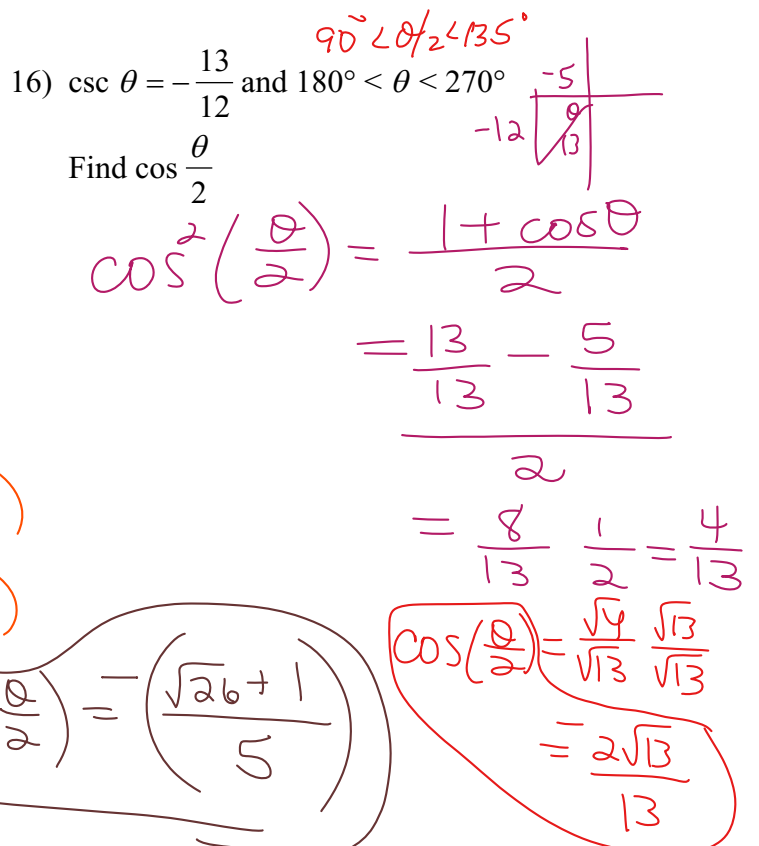 90° < θ/2 < 135°
16) csc θ = −13/12 and 180° < θ < 270°
-5
-12
θ
13
Find cos θ/2
cos²(θ/2) = (1 + cosθ)/2
= (13/13 − 5/13)/2
= 8/13 1/2 = 4/13
cos(θ/2) = √4/√13 √13/√13
= −2√13/13
θ/2) = −((√26 + 1)/5)